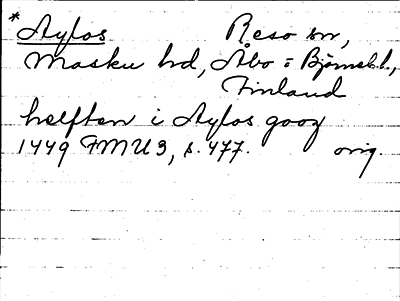 * Aylos Reso sn,
Masku hd, Åbo = Björneb. l.,
Finland
helften i Aylos godz
1449 FMU 3, s. 477. orig.